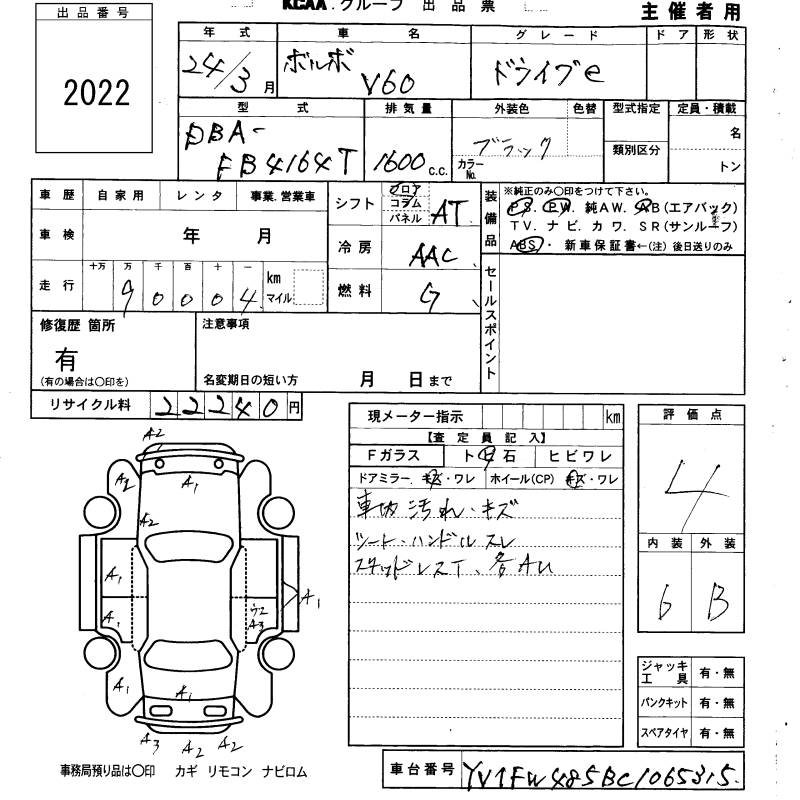 KCAA.グループ 出品票
主催者用
出品番号
2022
年 式 車 名 グレード ドア 形状
24/3月 ボルボ V60 ドライブe
型 式 排気量 外装色 色替 型式指定 定員・積載
DBA-
FB4164T 1600 c.c. ブラック カラーNo. 類別区分 名
トン
車歴 自家用 レンタ 事業.営業車
シフト フロア コラム パネル AT
装備品 ※純正のみ○印をつけて下さい。
PS. PW. 純AW. AB(エアバック)
TV. ナビ. カワ. SR(サンルーフ)
ABS・ 新車保証書←(注) 後日送りのみ
車検 年 月
冷房 AAC
走行 十万 万 千 百 十 一
9 0 0 0 4 km マイル
燃料 G
セールスポイント
修復歴 箇所
有
(有の場合は○印を)
注意事項
名変期日の短い方 月 日まで
リサイクル料 22240円
現メーター指示 km
【査定員記入】
Fガラス ト石 ヒビワレ
ドアミラー. キズ・ワレ ホイール(CP) キズ・ワレ
車内汚れ・キズ
シート・ハンドルスレ
スタッドレスT、各AU
評価点
4
内装 外装
6 B
A2
A2 A1
A2
A1
A1 ウ2 A3 A1
A1 A1
A3 A2 A2
ジャッキ工具 有・無
パンクキット 有・無
スペアタイヤ 有・無
事務局預り品は○印 カギ リモコン ナビロム
車台番号 YV1FW485BC1065315.